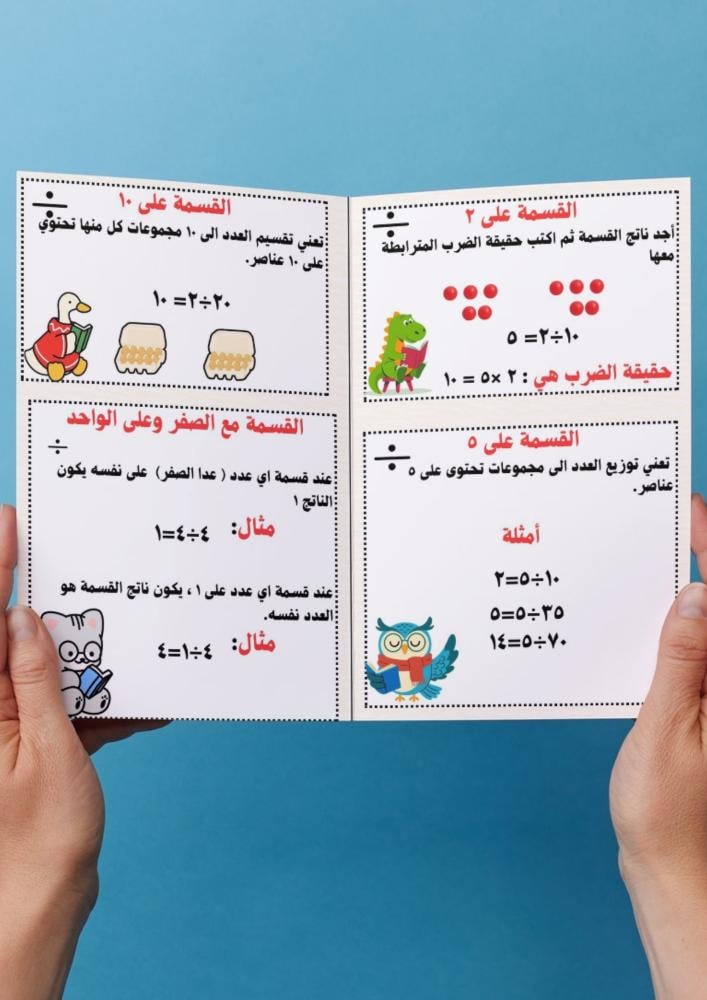 القسمة على ٢
÷
أجد ناتج القسمة ثم اكتب حقيقة الضرب المترابطة
معها
١٠÷٢= ٥
حقيقة الضرب هي : ٢ ×٥ = ١٠
القسمة على ٥
÷
تعني توزيع العدد الى مجموعات تحتوى على ٥
عناصر.
أمثلة
١٠÷٥=٢
٣٥÷٥=٥
٧٠÷٥=١٤
القسمة على ١٠
÷
تعني تقسيم العدد الى ١٠ مجموعات كل منها تحتوي
على ١٠ عناصر.
٢٠÷٢= ١٠
القسمة مع الصفر وعلى الواحد
÷
عند قسمة اي عدد ( عدا الصفر) على نفسه يكون
الناتج ١
مثال: ٤÷٤=١
عند قسمة اي عدد على ١ ، يكون ناتج القسمة هو
العدد نفسه.
مثال: ٤÷١=٤